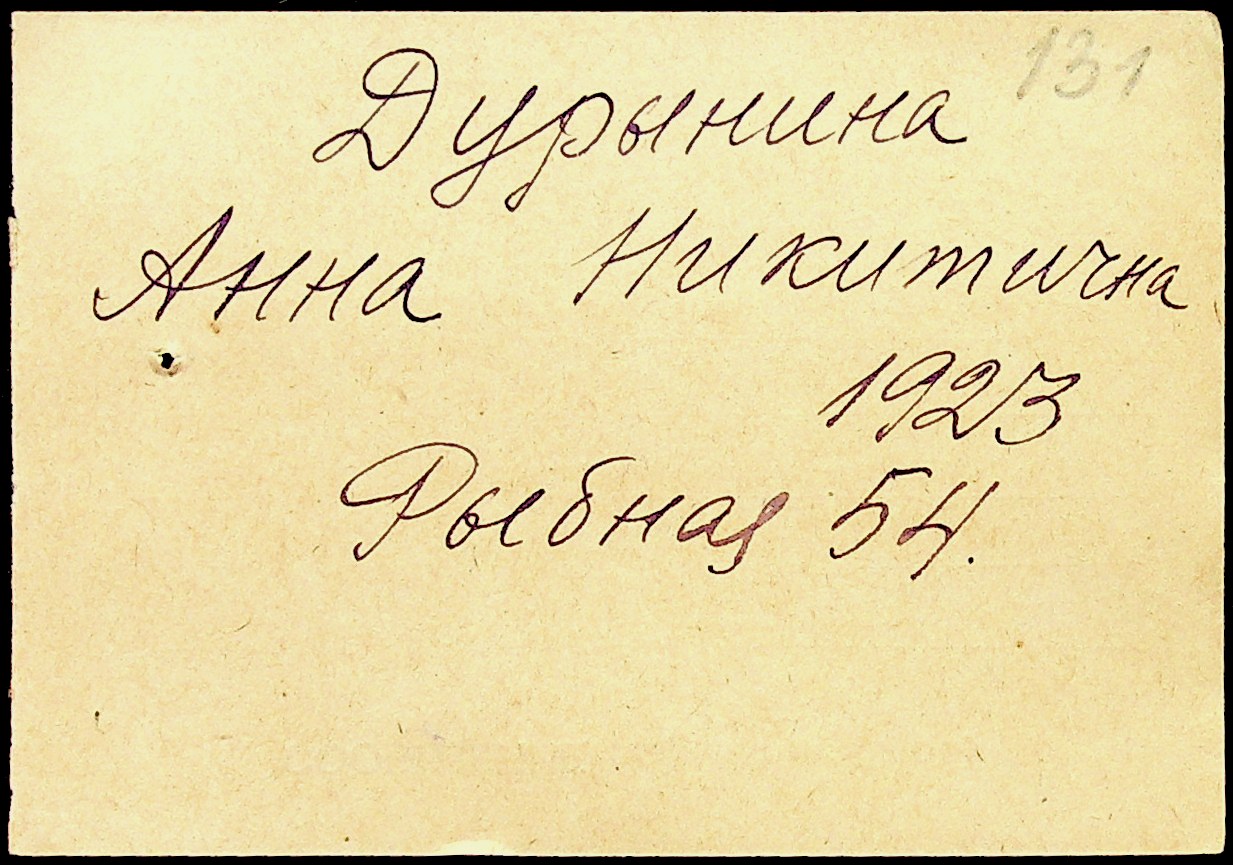 131
Дурынина
Анна Никитична
1923
Рыбная 54.